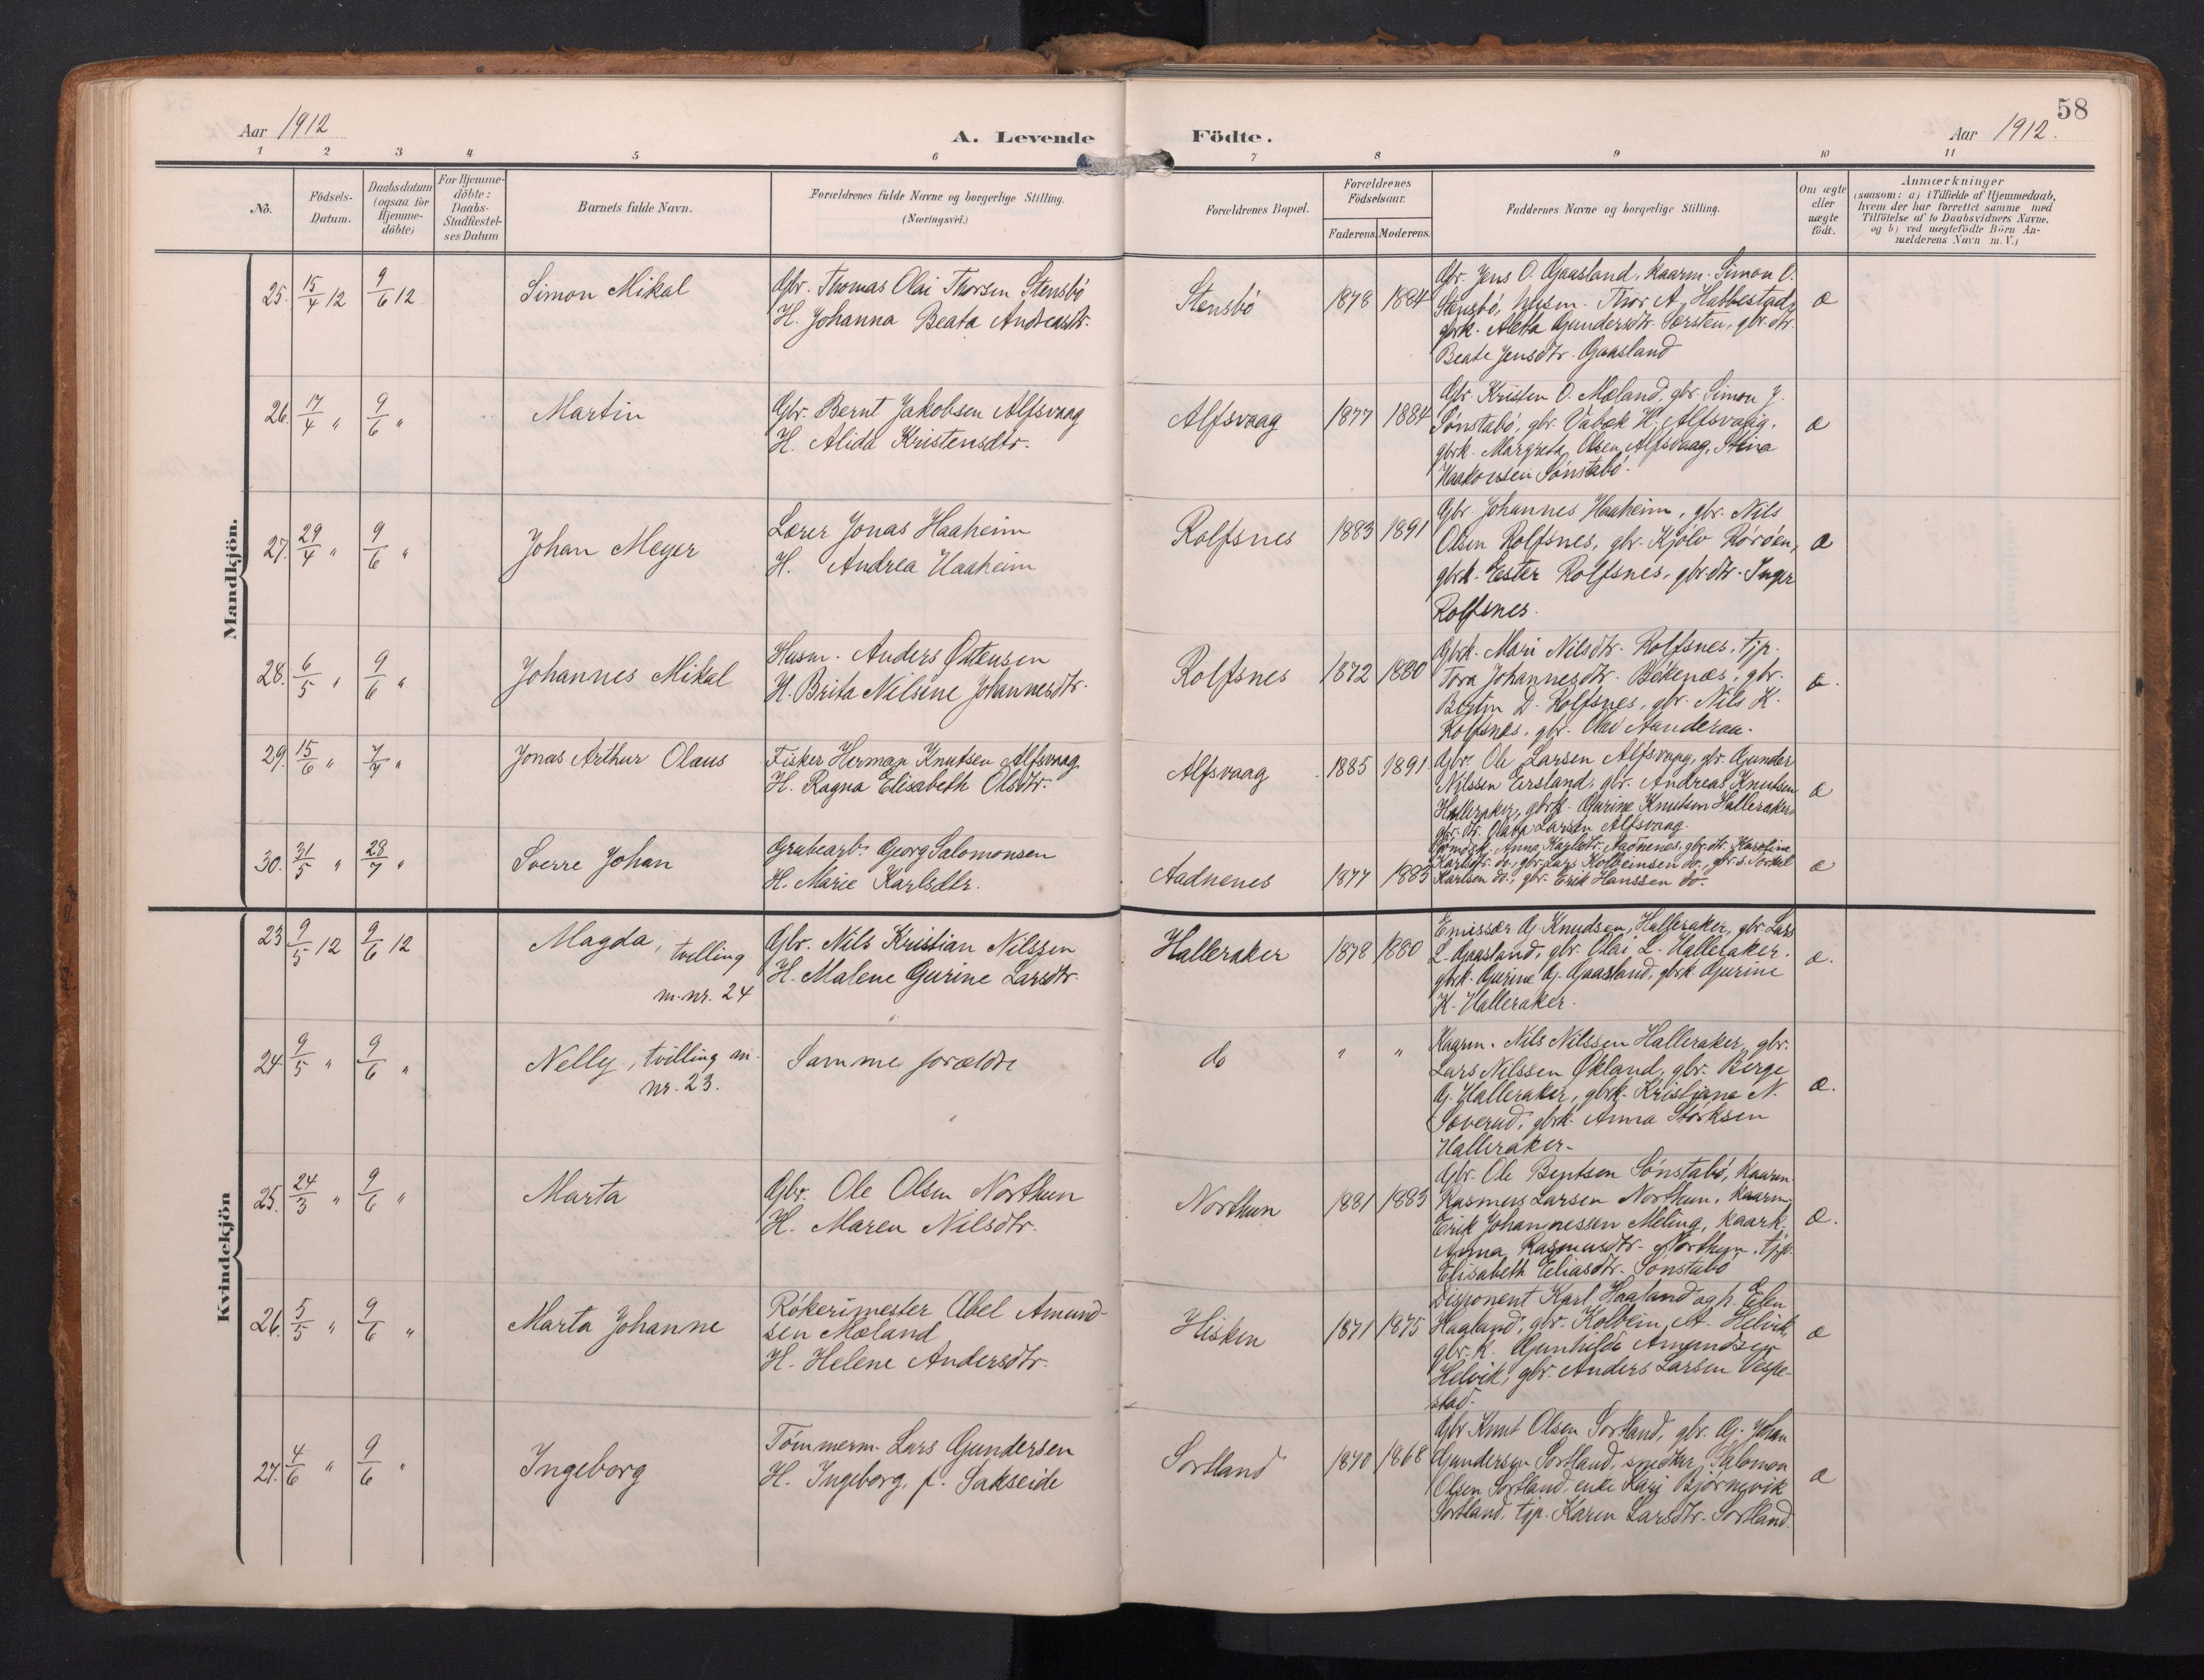 58
Aar 1912
A. Levende Födte.
Aar 1912.
1 2 3 4 5 6 7 8 9 10 11
No.
Födsels-
Datum.
Daabsdatum
(ogsaa for
Hjemme-
döbte)
For Hjemme-
döbte:
Daabs-
Stadfæstel-
ses Datum
Barnets fulde Navn.
Forældrenes fulde Navne og borgerlige Stilling.
(Næringsvei.)
Forældrenes Bopæl.
Forældrenes
Födselsaar.
Faderens. Moderens.
Faddernes Navne og borgerlige Stilling.
Om ægte
eller
uægte
födt.
Anmærkninger
(saasom: a) i Tilfælde af Hjemmedaab,
hvem der har forrettet samme med
Tilföielse af to Daabsvidners Navne.
og b) ved uægtefödte Börn An-
melderens Navn m. V.)
Mandkjön.
25. 15/4 12 9/6 12
Simon Mikal
Gbr. Thomas Olai Thorsen Stensbö
H. Johanna Beata Andreasdtr.
Stensbö
1878 1884
Gbr. Jens O. Gaasland, kaarm. Simon O.
Stensbö, husm. Thor A. Habbestad,
gbrk. Aleta Gundersdtr. Særsten, gbr.dtr.
Beate Jensdtr. Gaasland
æ
26. 17/4 " 9/6 "
Martin
Gbr. Bernt Jakobsen Alfsvaag
H. Alida Kristensdtr.
Alfsvaag
1877 1884
Gbr. Kristen O. Mæland, gbr. Simon J.
Sönstabö, gbr. Vabek H. Alfsvaag,
gbrk. Margreta Olsen Alfsvaag, Stina
Haakonsen Sönstabö.
æ
27. 29/4 " 9/6 "
Johan Meyer
Lærer Jonas Haaheim
H. Andrea Haaheim
Rolfsnes
1883 1891
Gbr. Johannes Haaheim, gbr. Nils
Olsen Rolfsnes, gbr. Kjölv Röröen,
gbrk. Ester Rolfsnes, gbr.dtr. Inger
Rolfsnes.
æ
28. 6/5 " 9/6 "
Johannes Mikal
Husm. Anders Östensen
H. Brita Nilsine Johannesdtr.
Rolfsnes
1872 1880
Gbrk. Mari Nilsdtr. Rolfsnes, tjp.
Tora Johannesdtr. Bökenæs, gbr.
D. Rolfsnes, gbr. Nils K.
Rolfsnes, gbr. Olav Aanderaa.
æ.
29. 15/6 " 7/7 "
Jonas Arthur Olaus
Fisker Herman Knutsen Alfsvaag
H. Ragna Elisabeth Olsdtr.
Alfsvaag
1885 1891
Gbr. Ole Larsen Alfsvaag, gbr. Gunder
Nilssen Eirsland, gbr. Andreas Knutsen
Halleraker, gbrk. Gurine Knutsen Halleraker,
gbr. dtr. Larsen Alfsvaag.
æ
30. 31/5 " 28/7 "
Sverre Johan
Grubearb. Georg Salomonsen
H. Marie Karlsdtr.
Aadnenes
1877 1883
Anna Karlsdtr. Aadnenes, gbr. dtr. Karoline
Karlsdtr. do., gbr. Lars Kolbeinsen do., gbr.s. Torkel
Karlsen do., gbr. Erik Hanssen do.
æ
Kvindekjön
23 9/5 12 9/6 12
Magda, tvilling
m. nr. 24
Gbr. Nils Kristian Nilssen
H. Malene Gurine Larsdtr.
Halleraker
1878 1880
Emissær G. Knudsen, Halleraker, gbr. Lars
L. Gaasland, gbr. Olai L. Halleraker.
gbrk. Gurine G. Gaasland, gbrk Gurine
K. Halleraker.
æ.
24 9/5 " 9/6 "
Nelly, tvilling m.
nr. 23.
Samme forældre
do
" "
Kaarm. Nils Nilssen Halleraker, gbr.
Lars Nilssen Økland, gbr. Berge
G. Halleraker, gbrk. Kristiane N.
Soverud, gbrk. Anna Störksen
Halleraker.
æ.
25. 24/3 " 9/6 "
Marta
Gbr. Ole Olsen Northun
H. Maren Nilsdtr.
Northun
1881 1883
Gbr. Ole Bentsen Sönstabö, kaarm.
Rasmus Larsen Northun, kaarm.
Erik Johannessen Meling, kaark.
Anna Rasmusdtr. Northun, tjp.
Elisabeth Eliasdtr. Sönstabö
æ.
26. 5/5 " 9/6 "
Marta Johanne
Rökerimester Abel Amund-
sen Mæland
H. Helene Andersdtr.
Hisken
1871 1875
Disponent Karl Haaland og h. Elen
Haaland, gbr. Kolbein A. Helvik,
gbr. k. Gunhilda Amundsen
Helvik, gbr. Anders Larsen Vespe-
stad.
æ
27. 4/6 " 9/6 "
Ingeborg
Tömmerm. Lars Gundersen
H. Ingeborg, f. Sakseide
Sortland
1870 1868
Gbr Knut Olsen Sortland, gbr. G. Johan
Gundersen Sortland, snedker Salomon
Olsen Sortland, enke Kari Björnevik
Sortland, tjp. Karen Larsdtr. Sortland.
æ